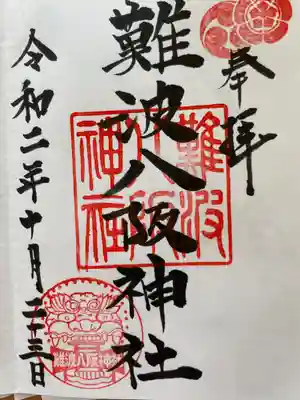 奉拝
難波八阪神社
令和二年十月二十三日
難波
八阪
神社
難波八阪神社